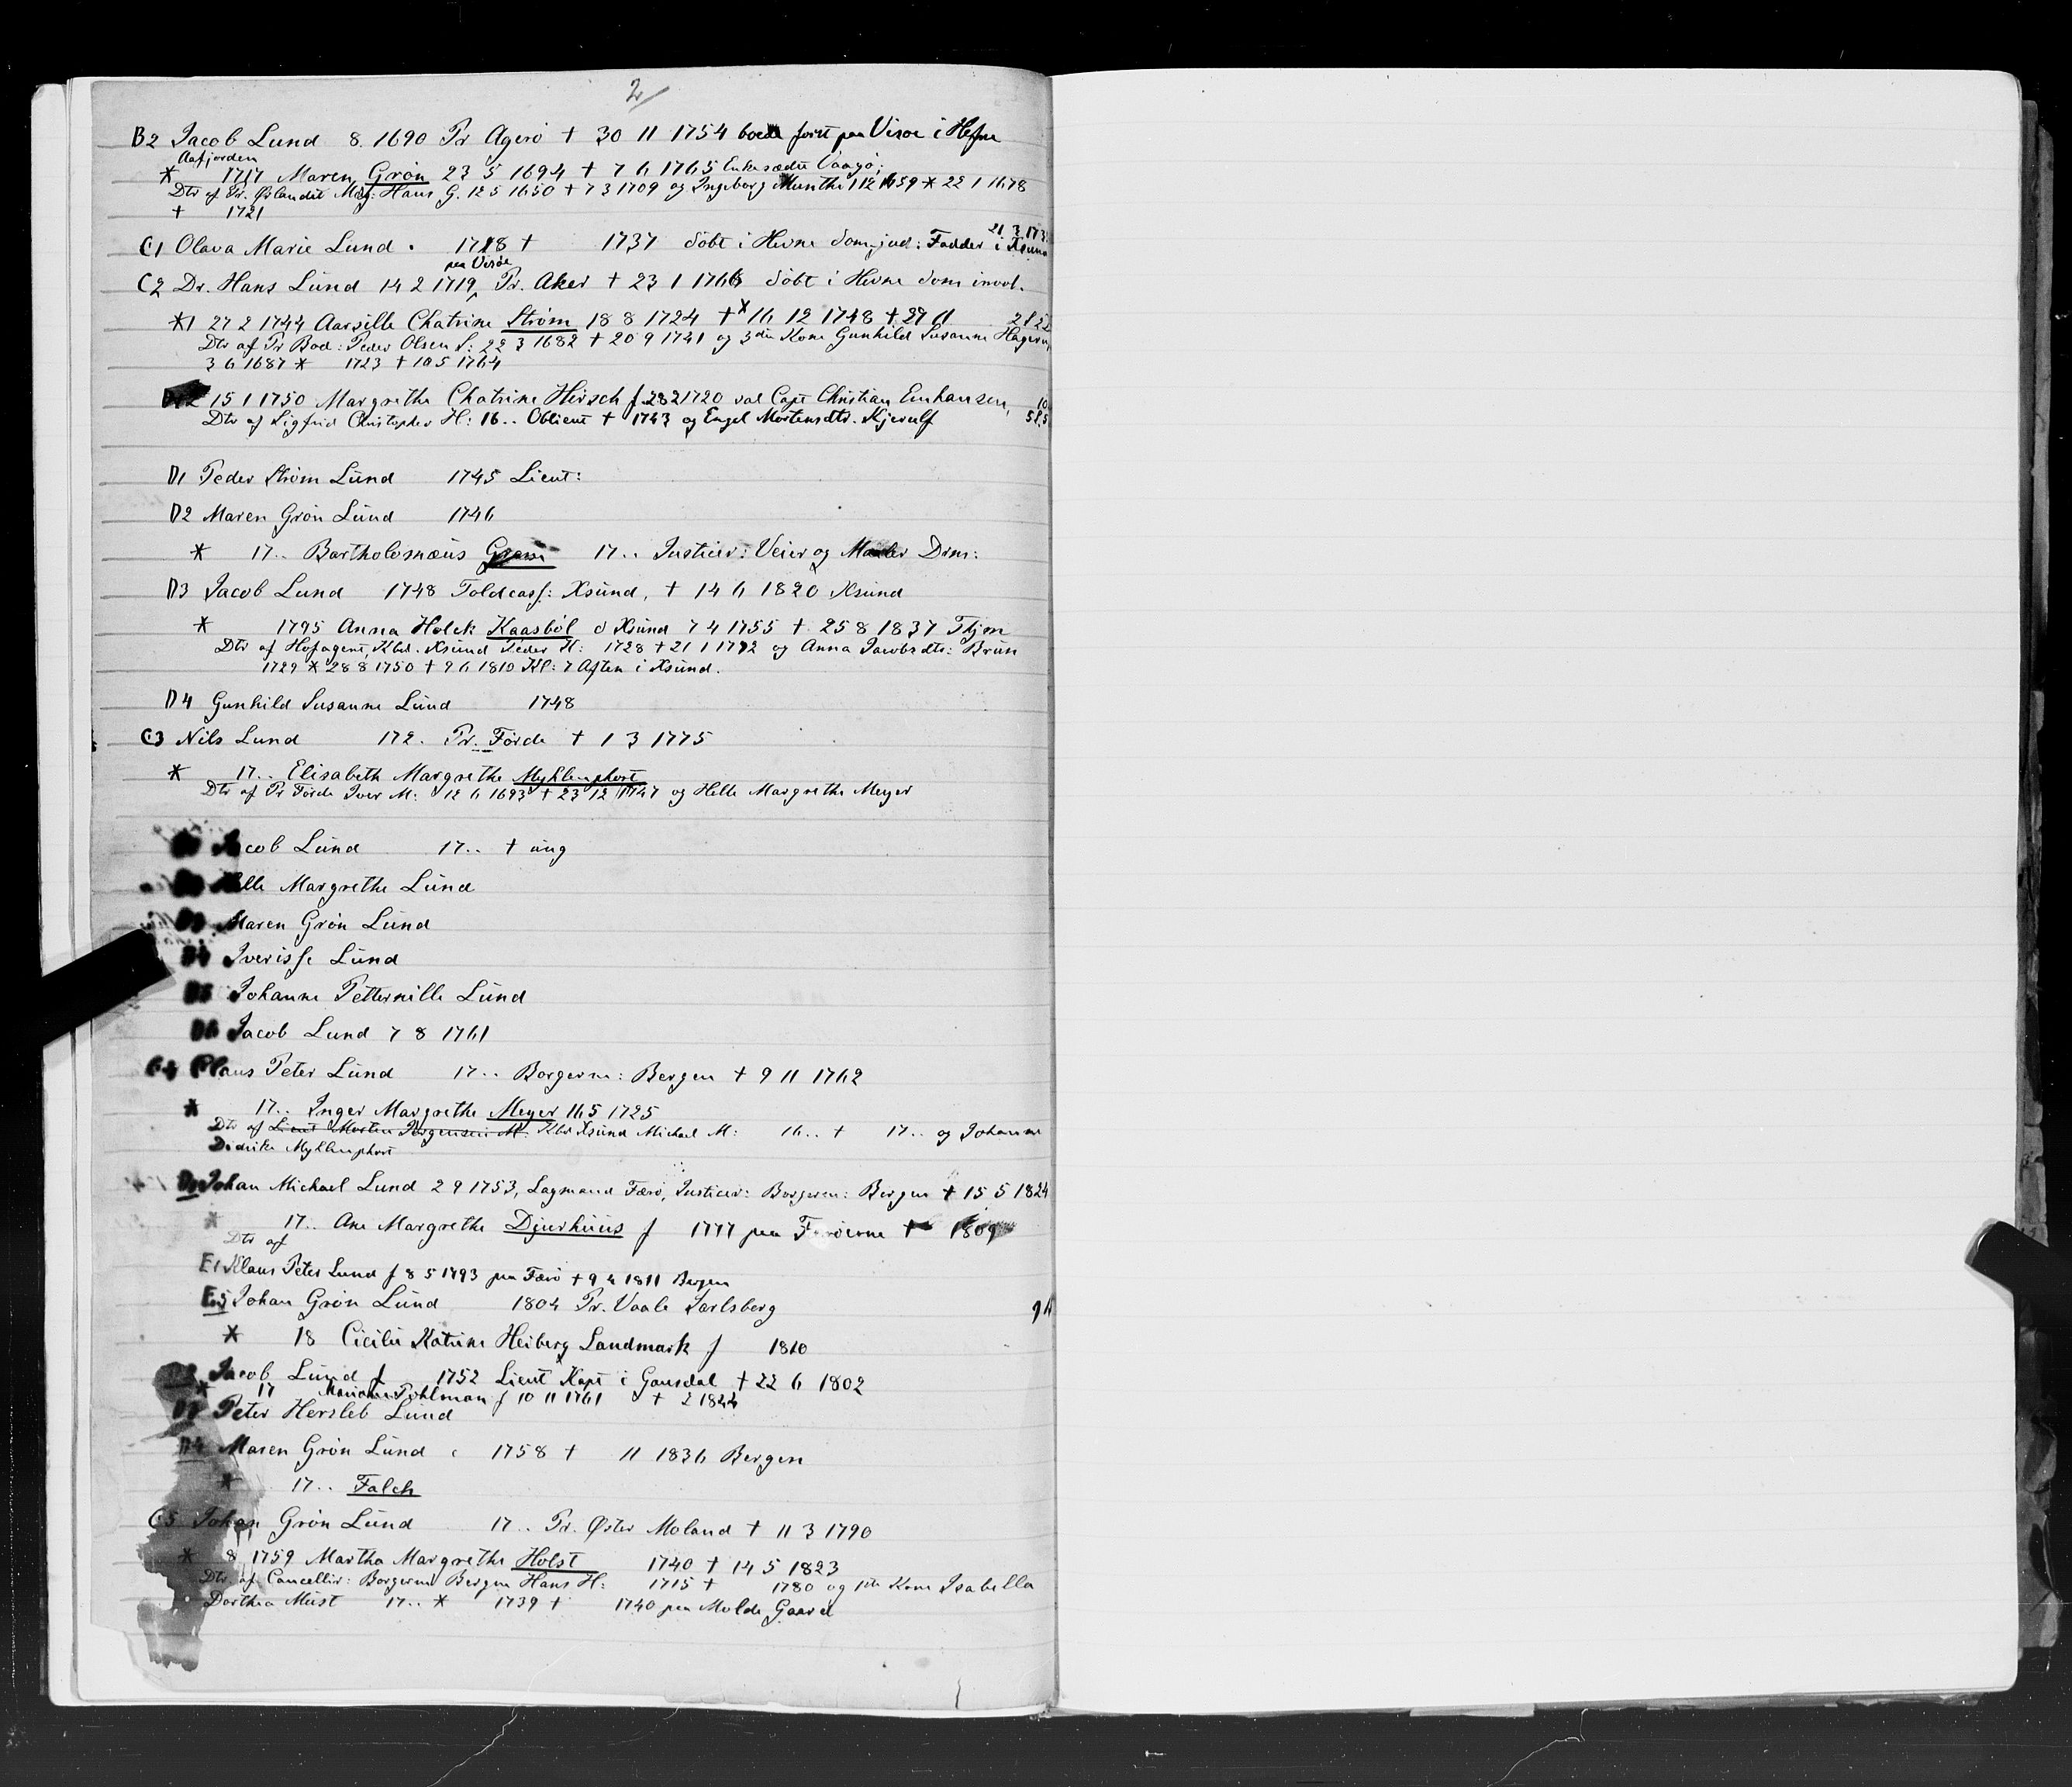 2/
B2 Jacob Lund 8. 1690 Pr Agerö + 30 11 1754 boede först paa Visoe i Hefne
Aafjorden
* 1717 Maren Grön 23 5 1694 + 7 6 1765 Enkesædet Vaagö;
Dtr af Pr. Ørlandet Mag: Hans G. 12 5 1650 + 7 3 1709 og Ingeborg Munthe 1 12 1659 * 22 1 1678
+ 1721
21 3 173
C1 Olava Marie Lund . 1718 + 1737 döbt i Hevne Domjud: Fadder i Xsund
paa Visöe
C2 Dr. Hans Lund 14 2 1719, Pr. Aker + 23 1 1766 döbt i Hevne Dom invoc.
*1 27 2 1744 Aarsille Chatrine Ström 18 8 1724 + * 16 12 1748 + 27 11
Dtr af Pr Bod: Peder Olsen S: 22 3 1682 + 20 9 1741 og 3die Kone Gunhild Susanne Hagerup
3 6 1687 * 1723 + 10 5 1764
*2 15 1 1750 Margrethe Chatrine Hirsch f 28 2 1720 Capt Christian Emhausen,
Dtr af Sigfrid Christopher H: 16.. Oblieut + 1743 og Engel Mortensdtr. Kjerulf
D1 Peder Ström Lund 1745 Lieut:
D2 Maren Grön Lund 1746
* 17.. Bartholomæus 17.. Justicer: Veier og Maaler Drm:
D3 Jacob Lund 1748 Toldcass: Xsund, + 14 6 1820 Xsund
* 1795 Anna Holck Kaasböl d Xsund 7 4 1755 + 25 8 1837 Thjem
Dtr af Hofagent, Kbd. Xsund Peder K: 1728 + 21 1 1792 og Anna Jacobsdtr: Brun
1729 * 28 8 1750 + 9 6 1810 Kl: 7 Aften i Xsund.
D4 Gunhild Susanne Lund 1748
C3 Nils Lund 172. Pr. Förde + 1 3 1775
* 17.. Elisabeth Margrethe Myhlenphort
Dtr af Pr Förde Iver M: 12 6 1693 + 23 12 1747 og Helle Margrethe Meyer
Jacob Lund 17.. + ung
Helle Margrethe Lund
D3 Maren Grön Lund
D4 Iverisse Lund
D5 Johanne Petternille Lund
D6 Jacob Lund 7 8 1761
C4 Claus Peter Lund 17.. Borgerm: Bergen + 9 11 1762
* 17.. Inger Margrethe Meyer 16 5 1725
Dtr af Lieut Morten Jörgensen M. Kbd Xsund Michael M: 16.. + 17.. og Johanne
Didrike Myhlenphort
D1 Johan Michael Lund 2 9 1753, Lagmand Færö, Justicer: Borgerm: Bergen + 15 5 1824
* 17.. Ane Margrethe Djurhuus f 1777 paa Færöerne + 1809
Dtr af
E1 Klaus Peter Lund f 8 5 1793 paa Færö + 9 4 1811 Bergen
E5 Johan Grön Lund 1804 Pr. Vaale Jarlsberg
* 18 Cicilie Katrine Heiberg Landmark f 1810
D2 Jacob Lund f 1752 Lieut Kapt i Gausdal + 22 6 1802
* 17 Mariane Pohlman f 10 11 1761 + 2 1844
Peter Hersleb Lund
D4 Maren Grön Lund c 1758 + 11 1836 Bergen
* 17.. Falch
C5 Johan Grön Lund 17.. Pr. Øster Moland + 11 3 1790
* 8 1759 Martha Margrethe Holst 1740 + 14 5 1823
Dtr af Cancellir: Borgerm Bergen Hans H: 1715 + 1780 og 1ste Kone Isabella
Dorthea Must 17.. * 1739 + 1740 paa Molde Gaard